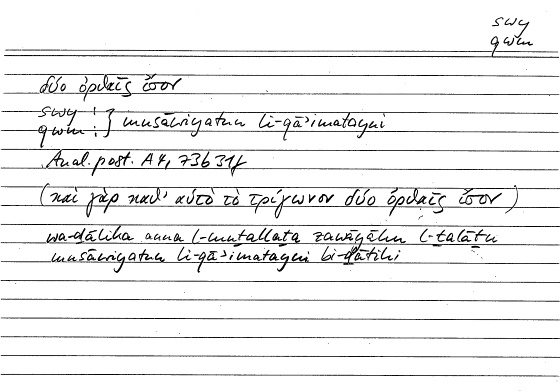 swy
qwm
δύο ὀρθαῖς ἴσον
swy :
qwm : } musāwiyatun li-qāʾimatayni
Anal. post. A 4, 73b31f
(καὶ γὰρ καθ' αὑτὸ τὸ τρίγωνον δύο ὀρθαῖς ἴσον)
wa-ḏālika anna l-muṯallaṯa zawāyāhu l-ṯalāṯu
musāwiyatun li-qāʾimatayni bi-ḏātihi